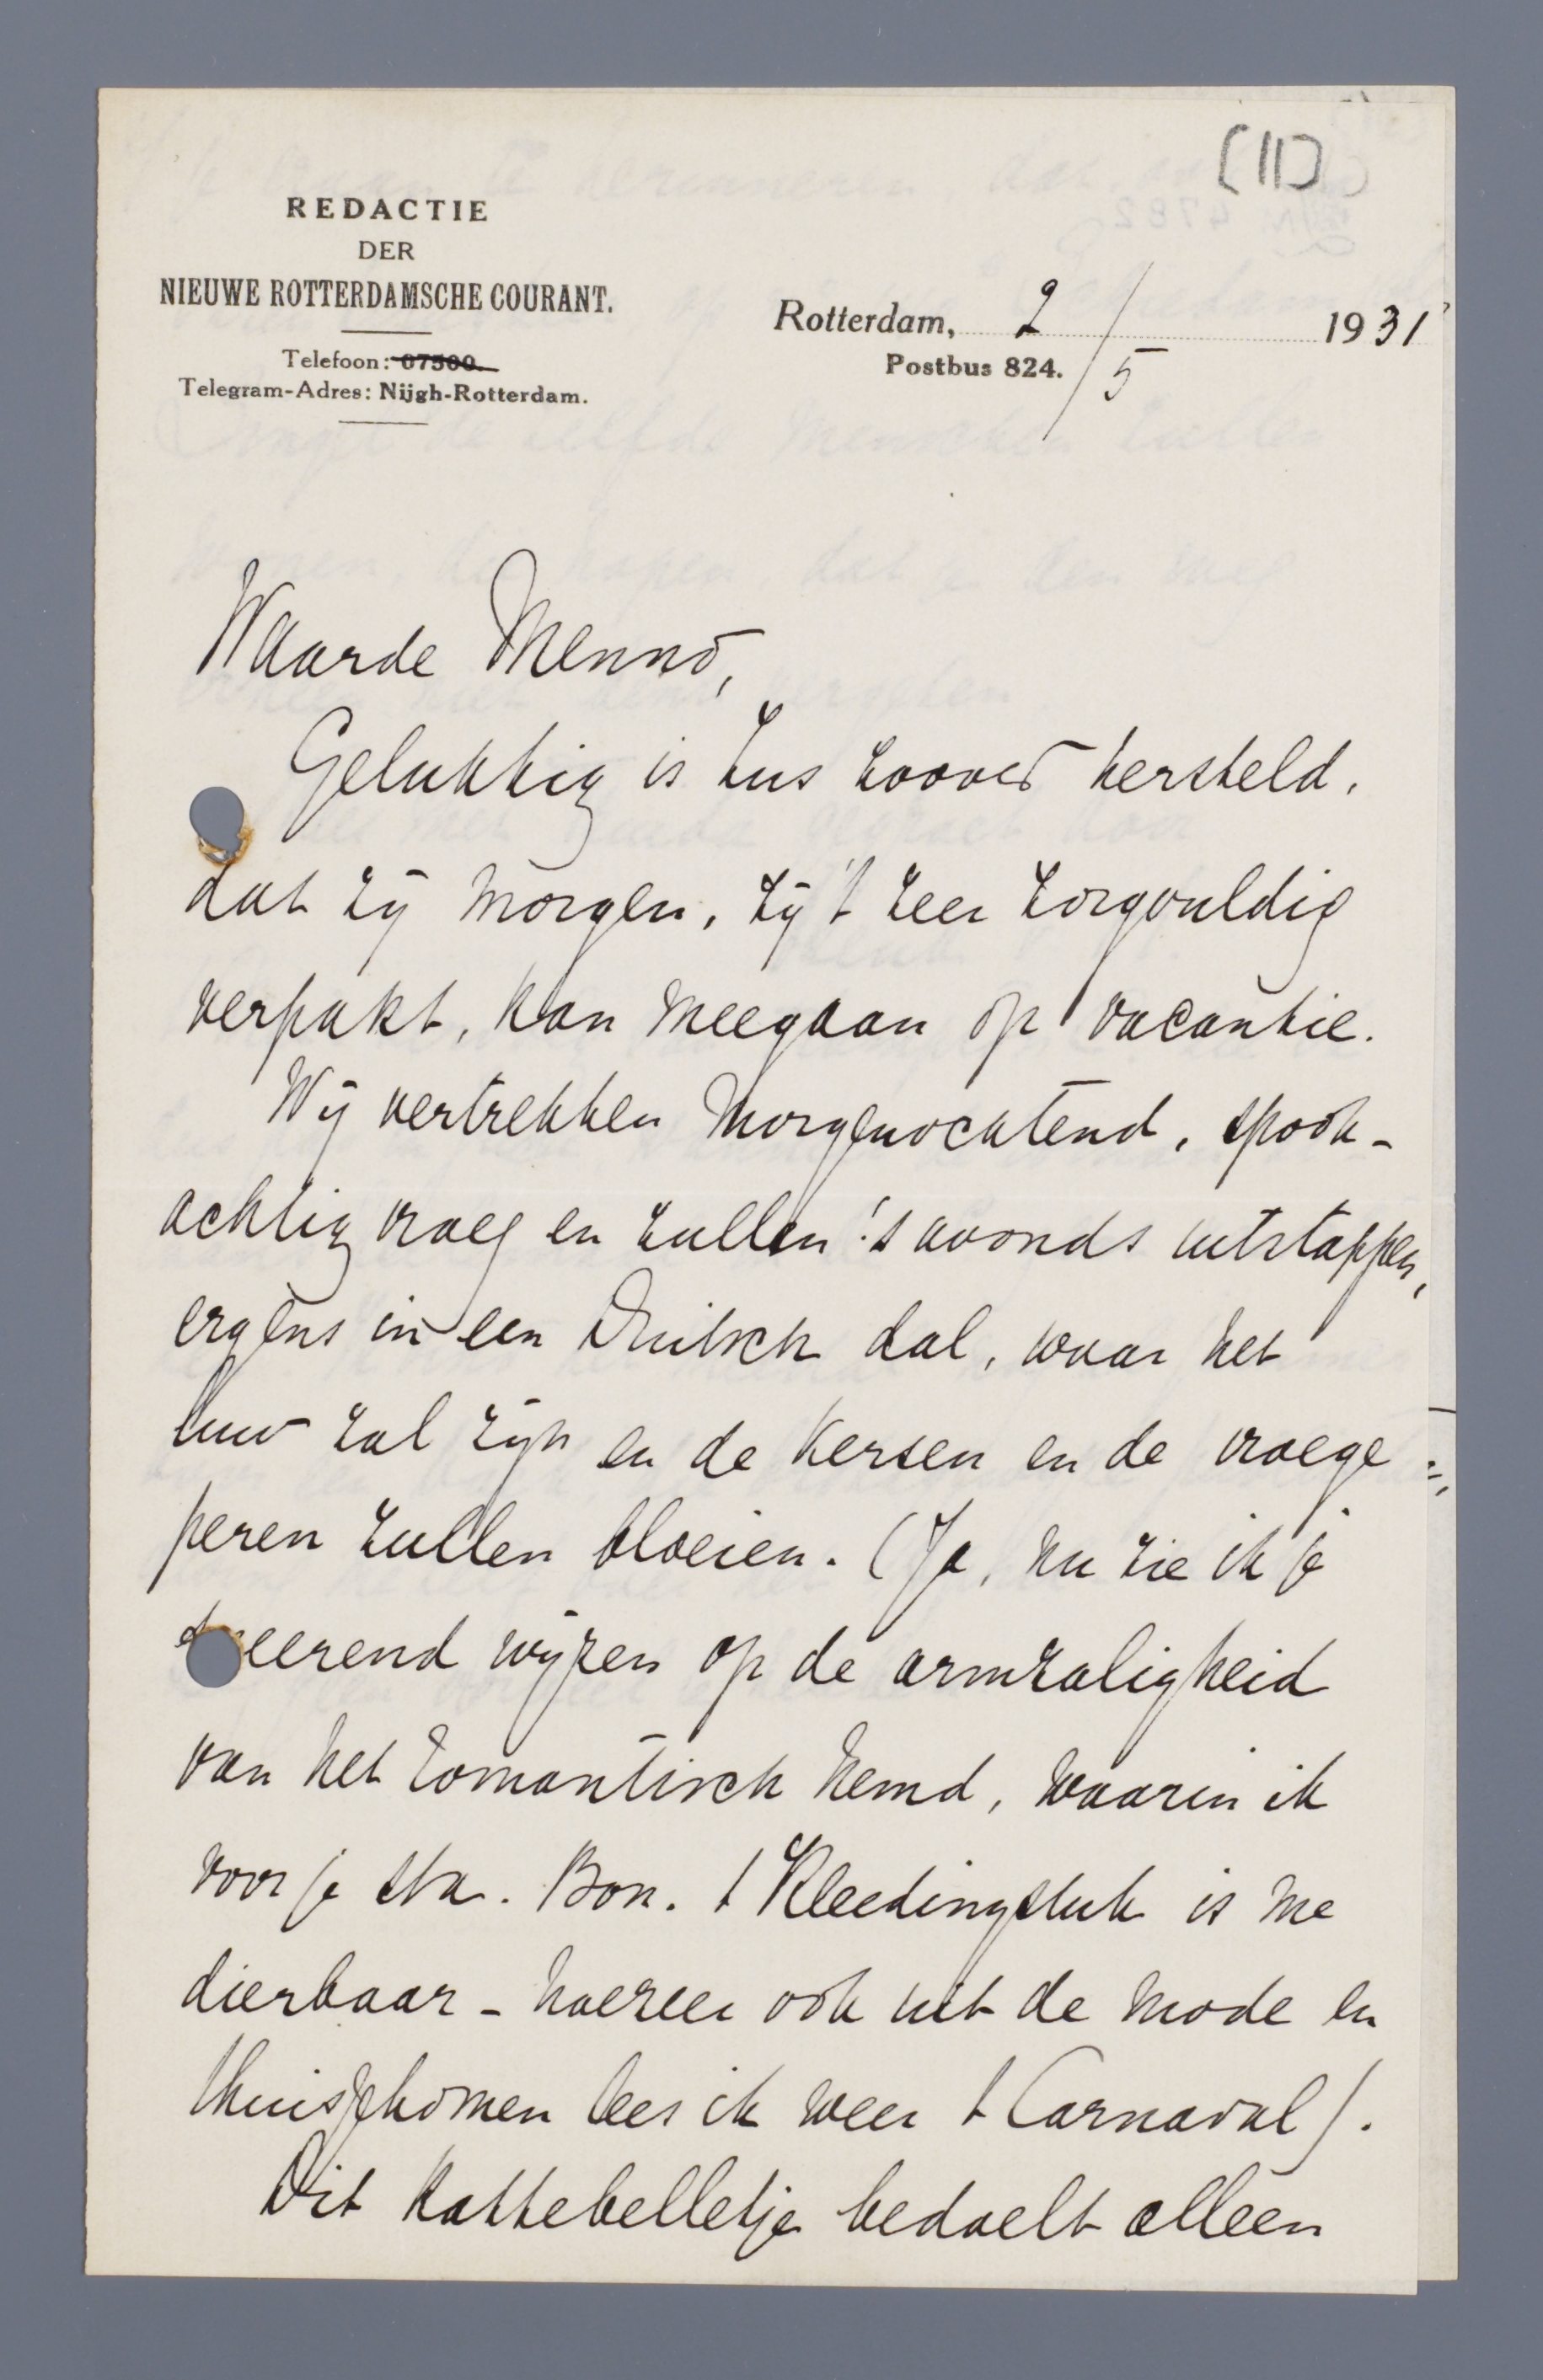 [11]
REDACTIE
DER
NIEUWE ROTTERDAMSCHE COURANT.
Telefoon: 67300.
Telegram-Adres: Nijgh-Rotterdam.
Rotterdam, 2/5 1931
Postbus 824.
Waarde Menno,
Gelukkig is Zus zoover hersteld,
dat zij morgen, zij 't zeer zorgvuldig
verpakt, kan meegaan op vacantie.
Wij vertrekken morgenochtend, spook-
achtig vroeg en zullen 's avonds uitstappen,
ergens in een Duitsch dal, waar het
luw zal zijn en de kersen en de vroege
peren zullen bloeien. (Ja, nu zie ik je
wijzen op de armzaligheid
van het romantisch hemd, waarin ik
voor je sta. Bon. 't Kleedingstuk is me
dierbaar - hoezeer ook uit de mode en
thuisgekomen lees ik weer 't Carnaval).
Dit kattebelletje bedoelt alleen